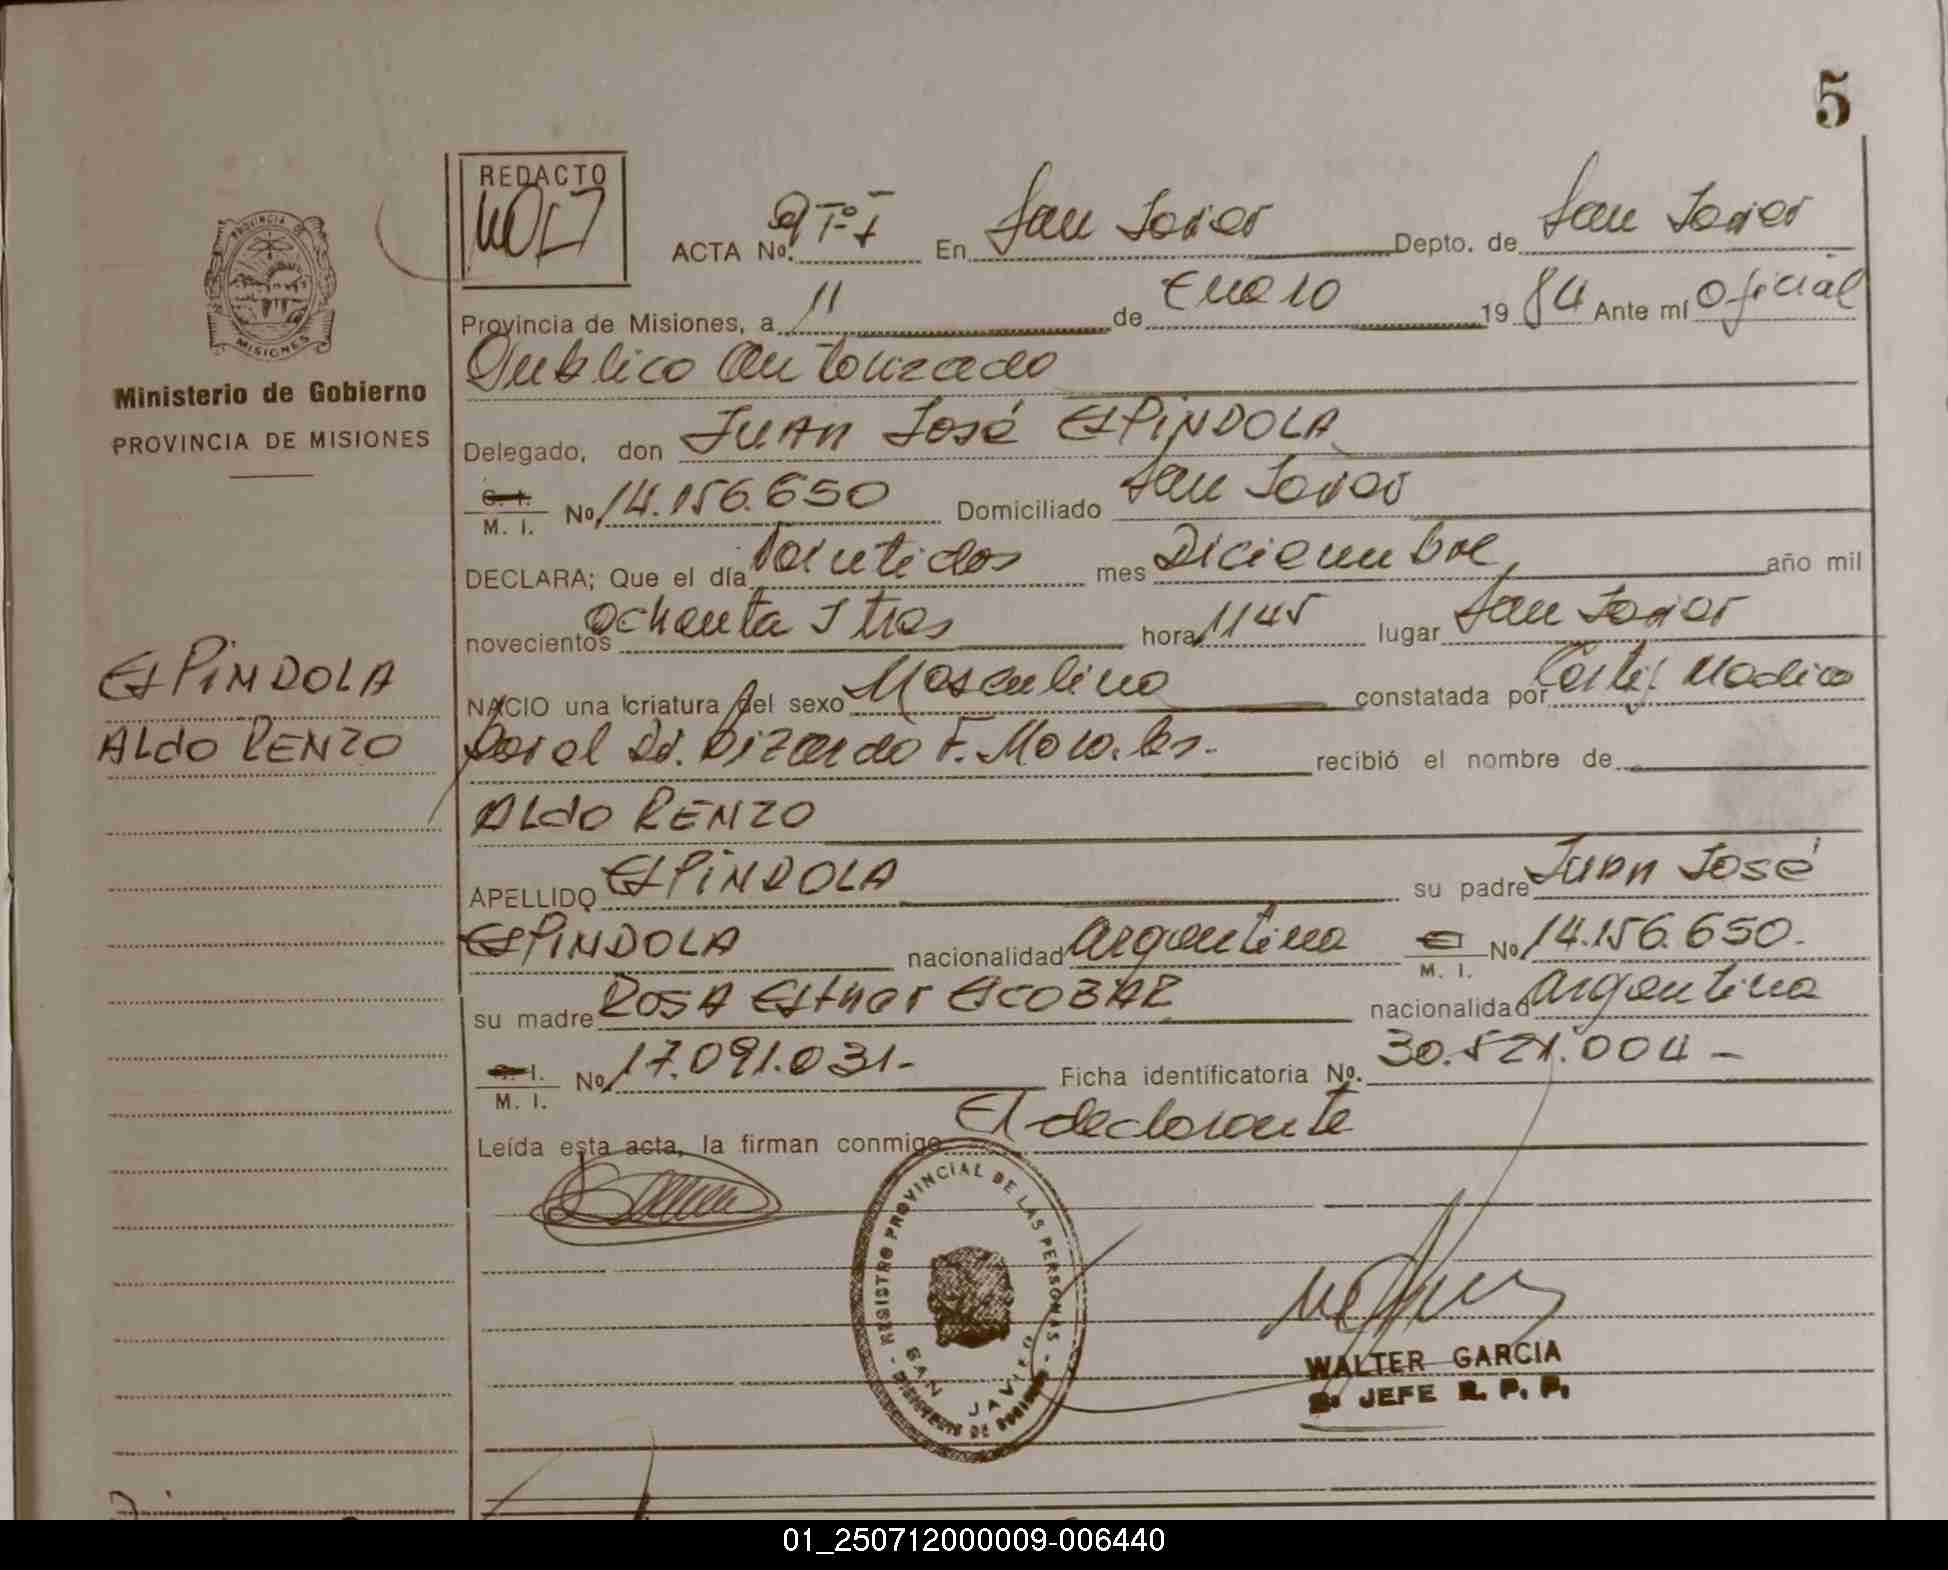 5
REDACTO
ACTA No. 9 Tº I En San Javier Depto. de San Javier
Provincia de Misiones, a 11 de Enero 19 84 Ante mí Oficial
Público Autorizado
Delegado, don JUAN José ESPINDOLA
C. I. M. I. No 14.156.650 Domiciliado San Javier
DECLARA; Que el día Veintidos mes Diciembre, año mil
novecientos ochenta y tres hora 1145 lugar San Javier
NACIO una criatura del sexo Masculino constatada por Certif. Medico
por el Dr. Lizardo F. Morales. recibió el nombre de
ALDO RENZO
APELLIDO ESPINDOLA su padre JUAN José
ESPINDOLA nacionalidad argentina M. I. No 14.156.650.
su madre ROSA ESTHER ESCOBAR nacionalidad argentina
C. I. M. I. No 17.091.031- Ficha identificatoria No. 30.521.004 -
Leída esta acta, la firman conmigo El declarante
PROVINCIA DE MISIONES
Ministerio de Gobierno
PROVINCIA DE MISIONES
ESPINDOLA
ALDO RENZO
- REGISTRO PROVINCIAL DE LAS PERSONAS -
SAN JAVIER
WALTER GARCIA
JEFE R. P. P.
01_250712000009-006440